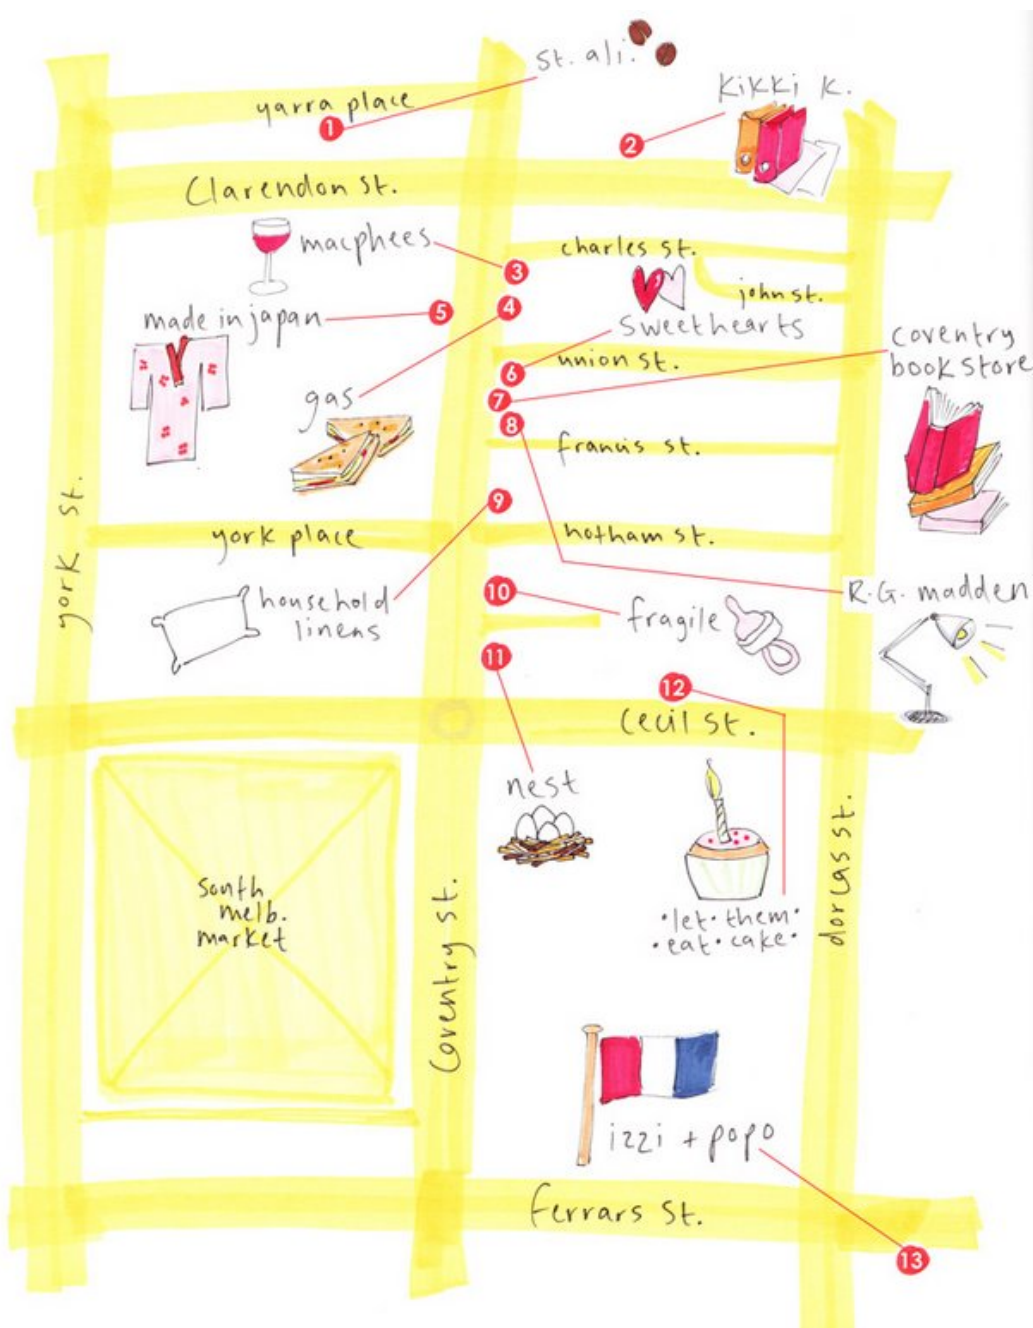 st. ali.
kikki k.
yarra place
1
2
Clarendon St.
macphees
charles st.
3
john st.
made in japan
5
4
sweethearts
coventry
book store
union st.
6
gas
7
8
francis st.
york st.
9
york place
hotham st.
household
linens
10
fragile
R.G. madden
11
12
Cecil St.
nest
south
melb.
market
Coventry st.
dorcas st.
•let•them•
•eat•cake•
izzi + popo
ferrars St.
13